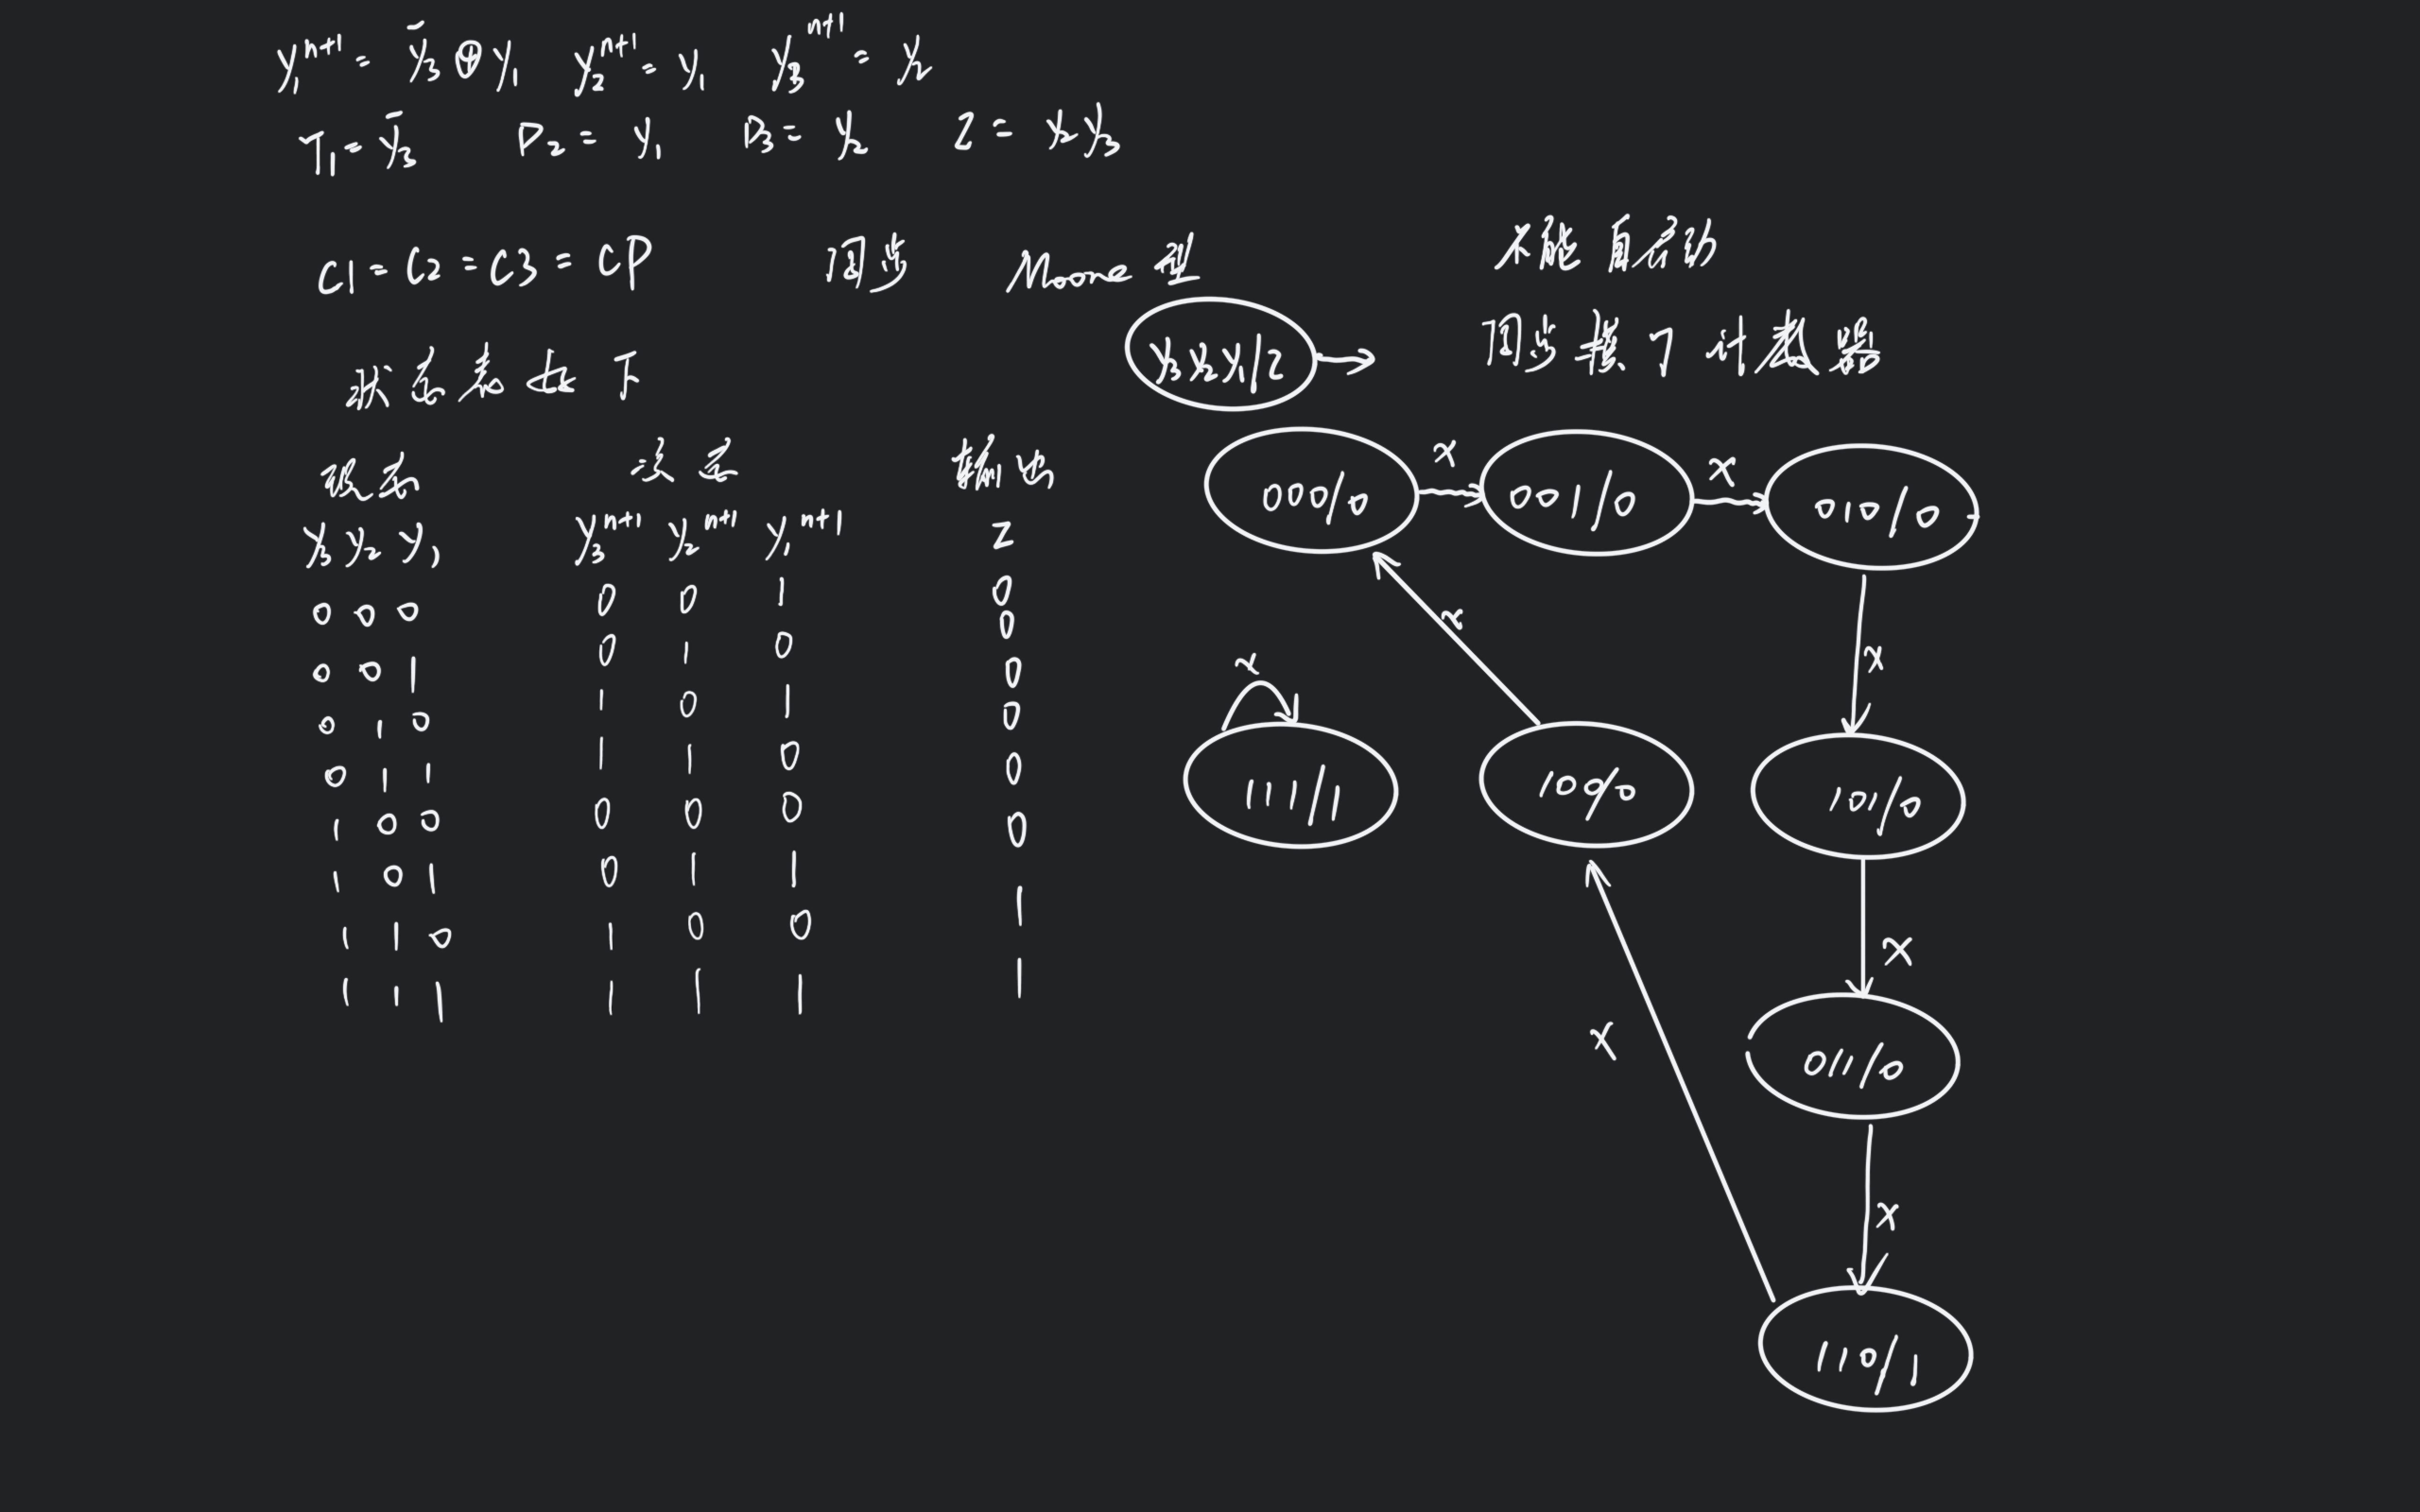 y₁ⁿ⁺¹ = ȳ₃ ⊕ y₁ y₂ⁿ⁺¹ = y₁ y₃ⁿ⁺¹ = y₂
T₁ = ȳ₃ D₂ = y₁ D₃ = y₂ Z = y₂y₃
C1 = C2 = C3 = CP 同步 Moore 型
不能自启动
同步模7计数器
y₃y₂y₁/Z
状态表如下
现态 次态 输出
y₃ y₂ y₁ y₃ⁿ⁺¹ y₂ⁿ⁺¹ y₁ⁿ⁺¹ Z
0 0 0 0 0 1 0
0 0 1 0 1 0 0
0 1 0 1 0 1 0
0 1 1 1 1 0 0
1 0 0 0 0 0 0
1 0 1 0 1 1 0
1 1 0 1 0 0 1
1 1 1 1 1 1 1
000/0 x 001/0 x 010/0
x
x
x
111/1 100/0 101/0
x
x
011/0
x
110/1